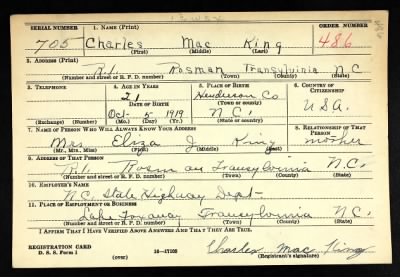 SERIAL NUMBER 1. NAME (Print) ORDER NUMBER
705 Charles Mac King 486
(First) (Middle) (Last)
2. ADDRESS (Print)
R.1. Rosman Transylvinia N.C.
(Number and street or R. F. D. number) (Town) (County) (State)
3. TELEPHONE 4. AGE IN YEARS 5. PLACE OF BIRTH 6. COUNTRY OF CITIZENSHIP
21 Henderson Co
DATE OF BIRTH (Town or county)
Oct- 5 1919 N.C. U.S.A.
(Exchange) (Number) (Mo.) (Day) (Yr.) (State or country)
7. NAME OF PERSON WHO WILL ALWAYS KNOW YOUR ADDRESS 8. RELATIONSHIP OF THAT PERSON
Mrs Eliza J King mother
(Mr., Mrs., Miss) (First) (Middle) (Last)
9. ADDRESS OF THAT PERSON
R.1. Rosman Transylvinia N.C.
(Number and street or R. F. D. number) (Town) (County) (State)
10. EMPLOYER'S NAME
N.C. State Highway Dept-
11. PLACE OF EMPLOYMENT OR BUSINESS
Lake Toxaway Transylvinia N.C.
(Number and street or R. F. D. number) (Town) (County) (State)
I AFFIRM THAT I HAVE VERIFIED ABOVE ANSWERS AND THAT THEY ARE TRUE.
REGISTRATION CARD Charles Mac King
D. S. S. Form 1 (over) 16—17105 (Registrant's signature)